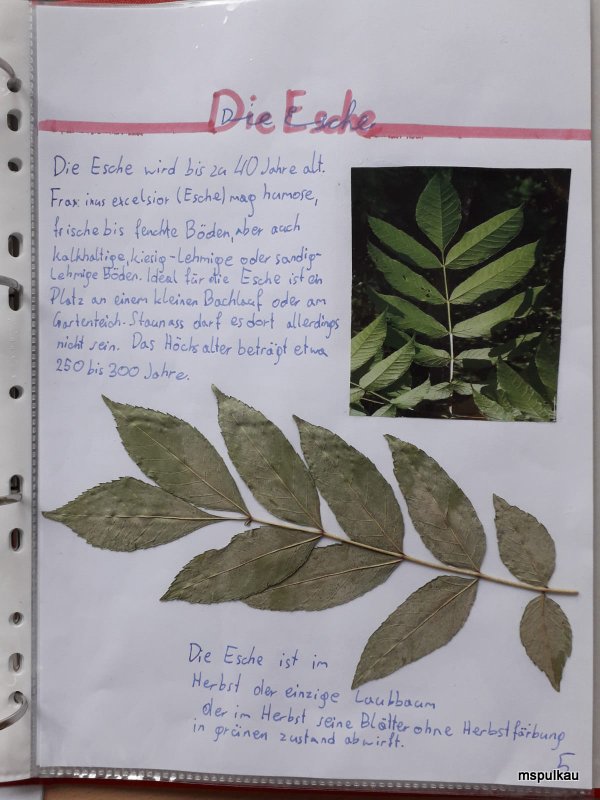 Die Esche
Die Esche wird bis zu 40 Jahre alt.
Frax inus excelsior (Esche) mag humose,
frische bis feuchte Böden, aber auch
kalkhaltige, kiesig-lehmige oder sandig-
Lehmige Böden. Ideal für die Esche ist ein
Platz an einem kleinen Bachlauf oder am
Gartenteich. Staunass darf es dort allerdings
nicht sein. Das Höchsalter beträgt etwa
250 bis 300 Jahre.
Die Esche ist im
Herbst der einzige Laubbaum
der im Herbst seine Blätter ohne Herbstfärbung
in grünen zustand abwirft.
5
mspulkau